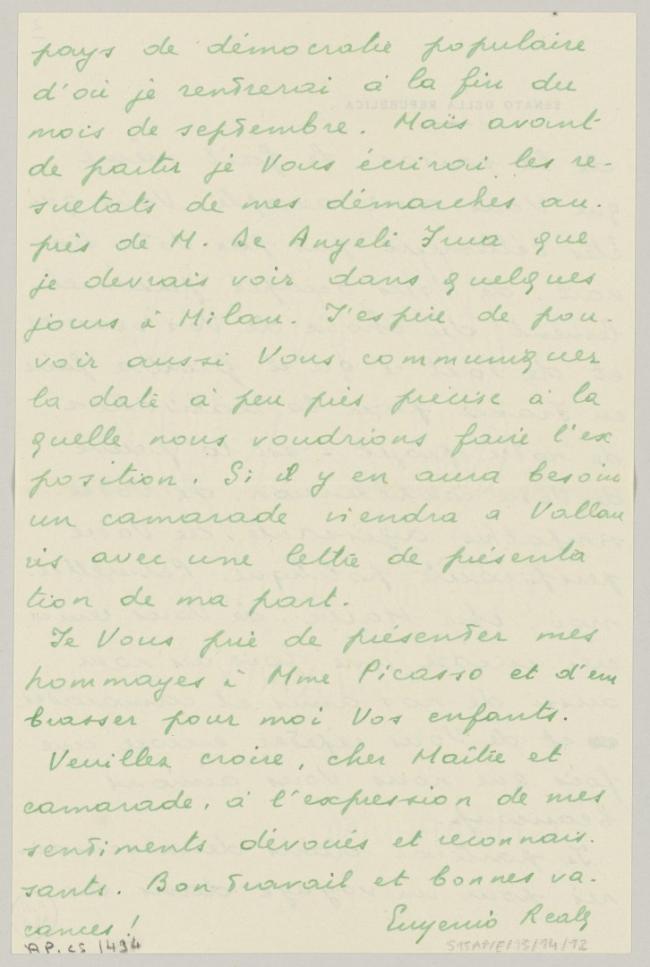 pays de démocratie populaire
d'où je rentrerai à la fin du
mois de septembre. Mais avant
de partir je Vous écrirai les re-
sultats de mes démarches au-
près de M. De Angeli Frua que
je devrais voir dans quelques
jours à Milan. J'espère de pou-
voir aussi Vous communiquer
la date à peu près précise à la
quelle nous voudrions faire l'ex
position. Si il y en aura besoin
un camarade viendra a Vallau
ris avec une lettre de présenta
tion de ma part.
Je Vous prie de présenter mes
hommages à Mme Picasso et d'em
brasser pour moi Vos enfants.
Veuillez croire, cher Maître et
camarade, à l'expression de mes
sentiments dévoués et reconnais-
sants. Bon travail et bonnes va-
cances!
Eugenio Reale
AP. CS /494
515AP/E/15/14/12
SENATO DELLA REPUBBLICA